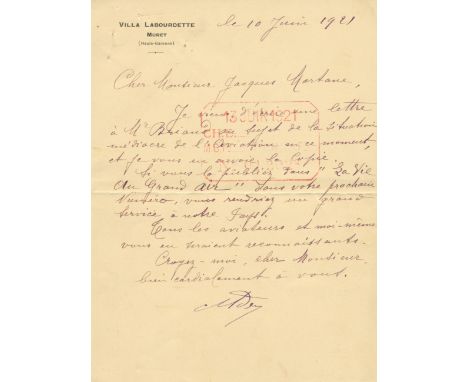 VILLA LABOURDETTE
MURET
(Haute-Garonne)
le 10 Juin 1921
Cher Monsieur Jacques Mortane,
Je viens d'écrire une lettre
à Mr Briand au sujet de la situation
médiocre de l'Aviation en ce moment,
et je vous en envoie la Copie.
13 JUIN 1921
Si vous la publiez dans "La Vie
au Grand Air" dans votre prochain
Numéro, vous rendriez un grand
service à notre Pays.
Tous les aviateurs et moi-même
vous en seraient reconnaissants.
Croyez-moi, cher Monsieur,
bien cordialement à vous.